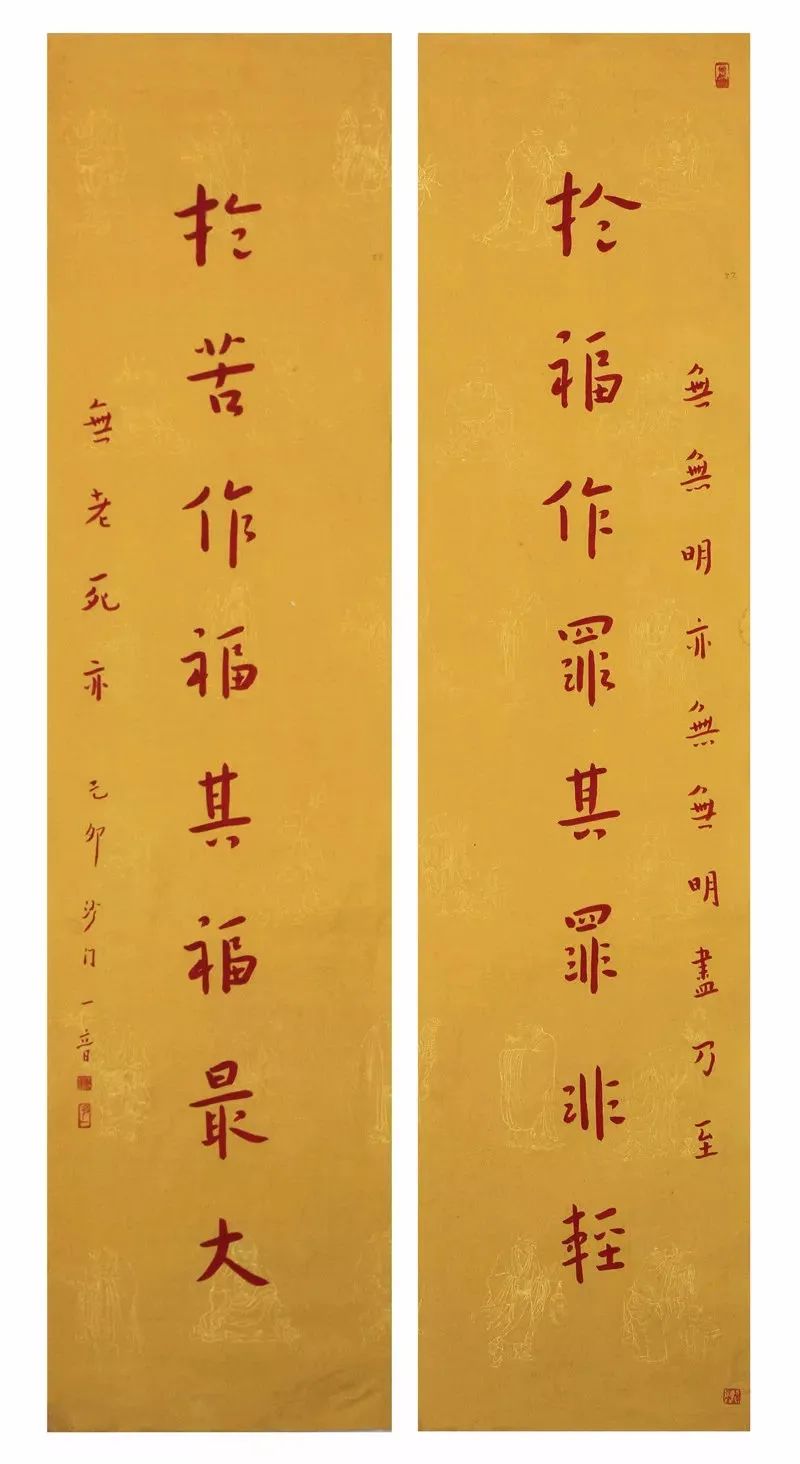 於福作罪其罪非輕
無無明亦無無明盡乃至
於苦作福其福最大
無老死亦 己卯沙门一音